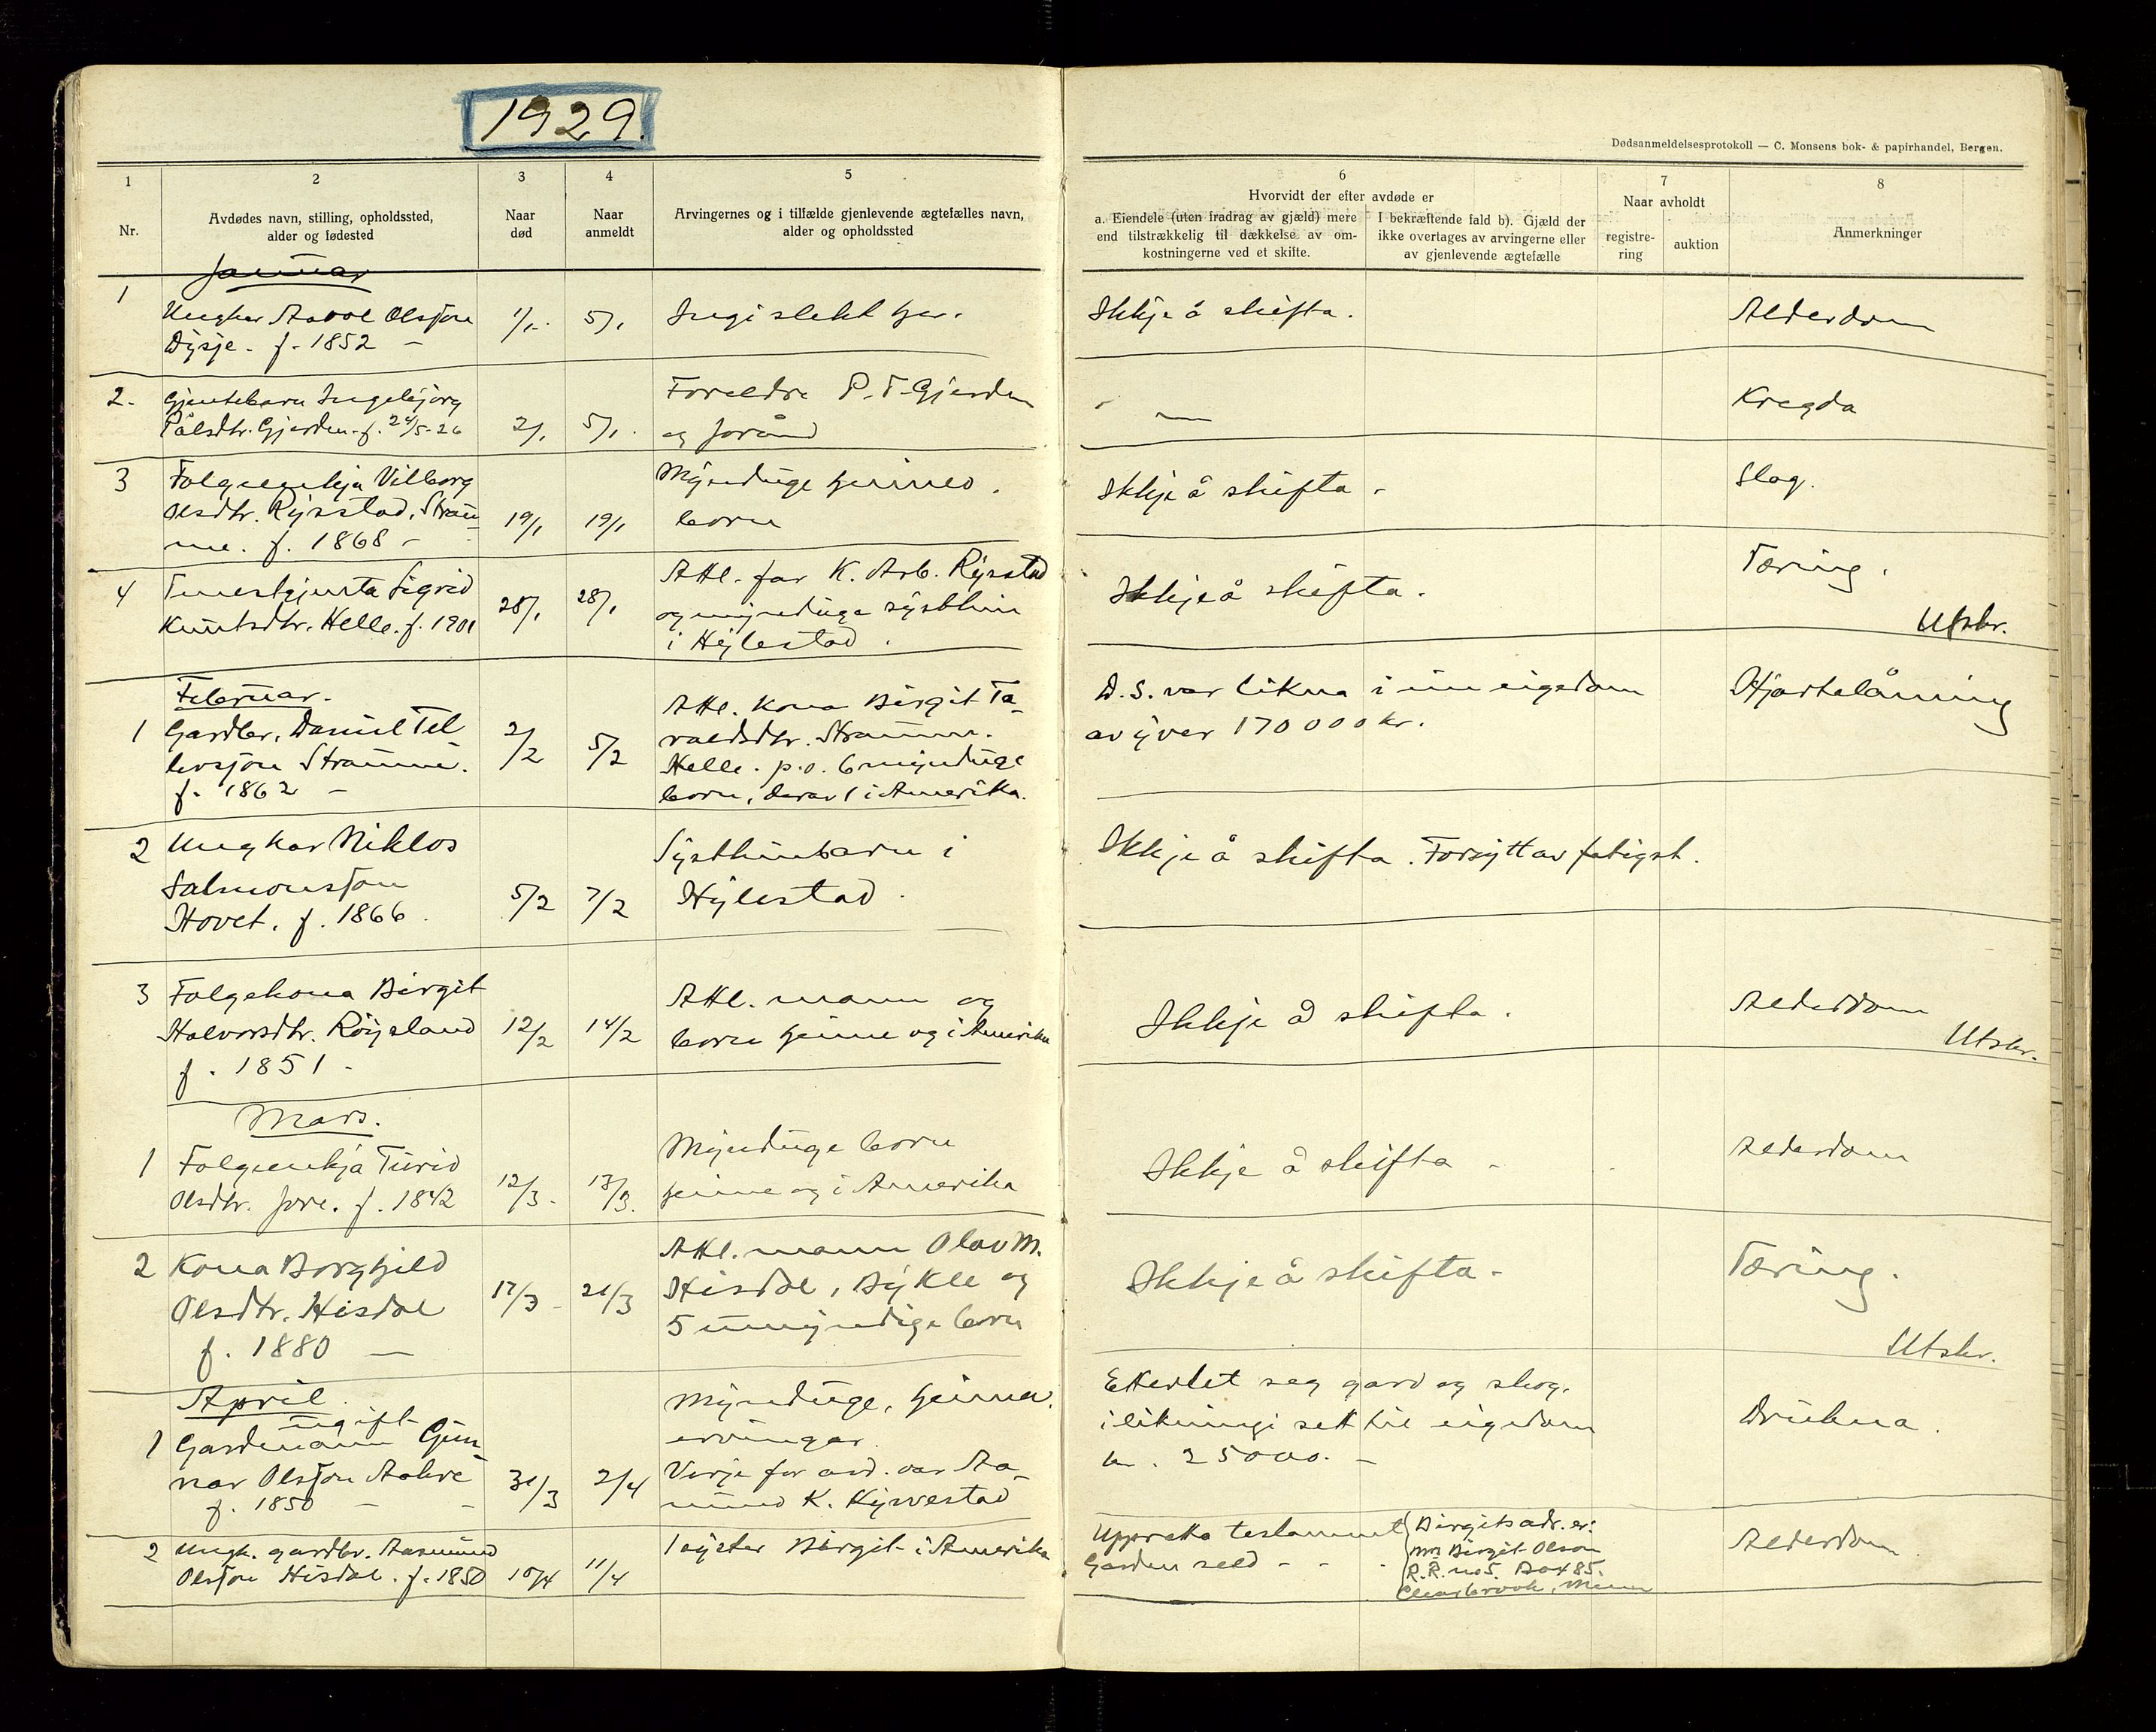 1929.
Dødsanmeldelsesprotokoll — C. Monsens bok- & papirhandel, Bergen.
1 2 3 4 5 6 7 8
Nr.
Avdødes navn, stilling, opholdssted,
alder og fødested
Naar
død
Naar
anmeldt
Arvingernes og i tilfælde gjenlevende ægtefælles navn,
alder og opholdssted
Hvorvidt der efter avdøde er
a. Eiendele (uten fradrag av gjæld) mere
end tilstrækkelig til dækkelse av om-
kostningerne ved et skifte.
I bekræftende fald b). Gjæld der
ikke overtages av arvingerne eller
av gjenlevende ægtefælle
Naar avholdt
registre-
ring
auktion
Anmerkninger
Januar
1
Ungkar Olsson
f. 1852 –
1/1 5/1
Ingi slekt her.
Ikkje å skifta.
Alderdom
2.
Gjentebarn Ingebjørg
Pålsdtr. Gjerden. f. 24/5-26
2/1 5/1.
Foreldre P. T. Gjerden
og
Kregda
3
Folgeenkja Vilborg
Olsdtr. Rysstad, Straum-
me. f. 1868 –
19/1 19/1
Mynduge heimeo.
born
Ikkje å skifta –
Slag.
4
Tenestgjenta Sigrid
Knutsdtr. Helle. f. 1901
28/1 28/1
Attl. far K. Arb. Rysstad
og mynduge syskhin
i Hylestad.
Ikkje å skifta.
Tæring.
Utskr.
Februar.
1
Gardbr. Daniel Tel
levsson Straume.
f. 1862 –
2/2 5/2
Attl. kona Birgit Ta-
raldsdtr. Straume.
Helle. p.o. 6 mynduge
born, derav 1 i Amerika.
D. S. var likna i ein eigedom
av yver 170 000 kr.
Hjartelåming
2
Ungkar Niklos
Salmonsson
Hovet. f. 1866.
5/2 7/2
Syskhinbarn i
Hylestad.
Ikkje å skifta. Forsytt av fatigst.
3
Folgekona Birgit
Halvorsdtr. Røysland
f. 1851 –
12/2 14/2
Attl. mann og
born heime og i Amerika
Ikkje å skifta.
Alderdom
Utskr.
Mars.
1
Folgeenkja Turid
Olsdtr. f. 1842
12/3. 13/3.
Mynduge born
heime og i Amerika
Ikkje å skifta –
Alderdom
2
Kona Borghild
Olsdtr. Hisdal
f. 1880 —
17/3 21/3
Attl. mann Olav M.
Hisdal, Bykle og
5 umyndige born
Ikkje å skifta –
Tæring.
Utskr.
April.
1
ugift
Gardmann Gun-
nar Olsson
f. 1850 –
31/3 2/4
Mynduge, heimev.
ervingar.
Verje for avd. var Aa-
mund K. Kyrvestad
Etterlet seg gard og skog,
i likningi sett til eigedom
kr. 25000. –
Drukna.
2
Ungk. gardbr. Aasmund
Olsson Hisdal. f. 1850
10/4 11/4
1 syster Birgit i Amerika
Uppretta testament
Garden seld – –
Birgits adr. er:
Mrs Birgit Olson
R.R. no 5. Box 85.
Clearbrook, Minn
Alderdom